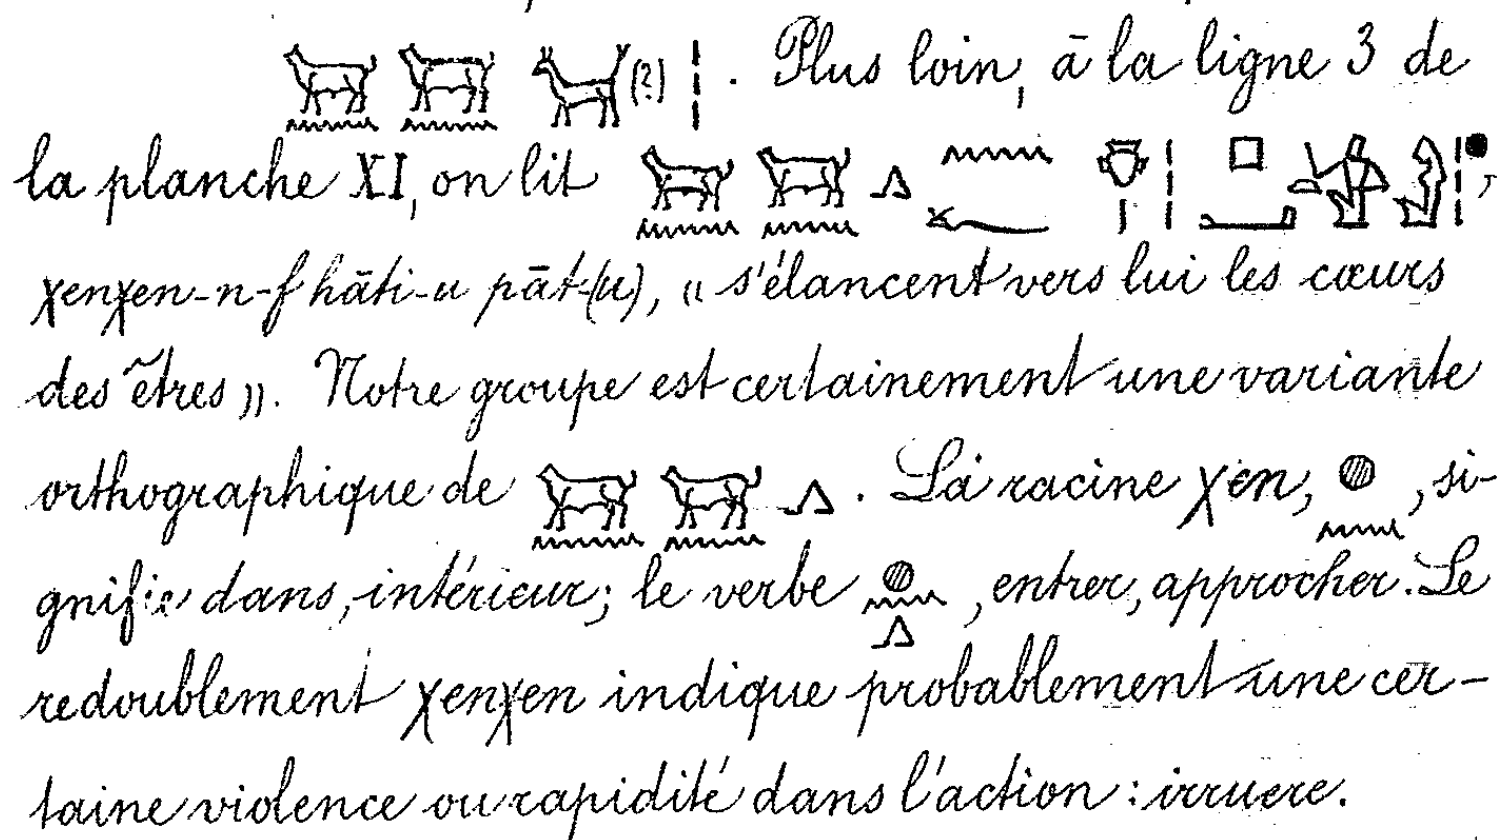 (?) . Plus loin, à la ligne 3 de
la planche XI, on lit ,
χenχen-n-f hāti-u pāt-(u), « s'élancent vers lui les cœurs
des êtres ». Notre groupe est certainement une variante
orthographique de . La racine χen, , si-
gnifie dans, intérieur; le verbe , entrer, approcher. Le
redoublement χenχen indique probablement une cer-
taine violence ou rapidité dans l'action : irruere.